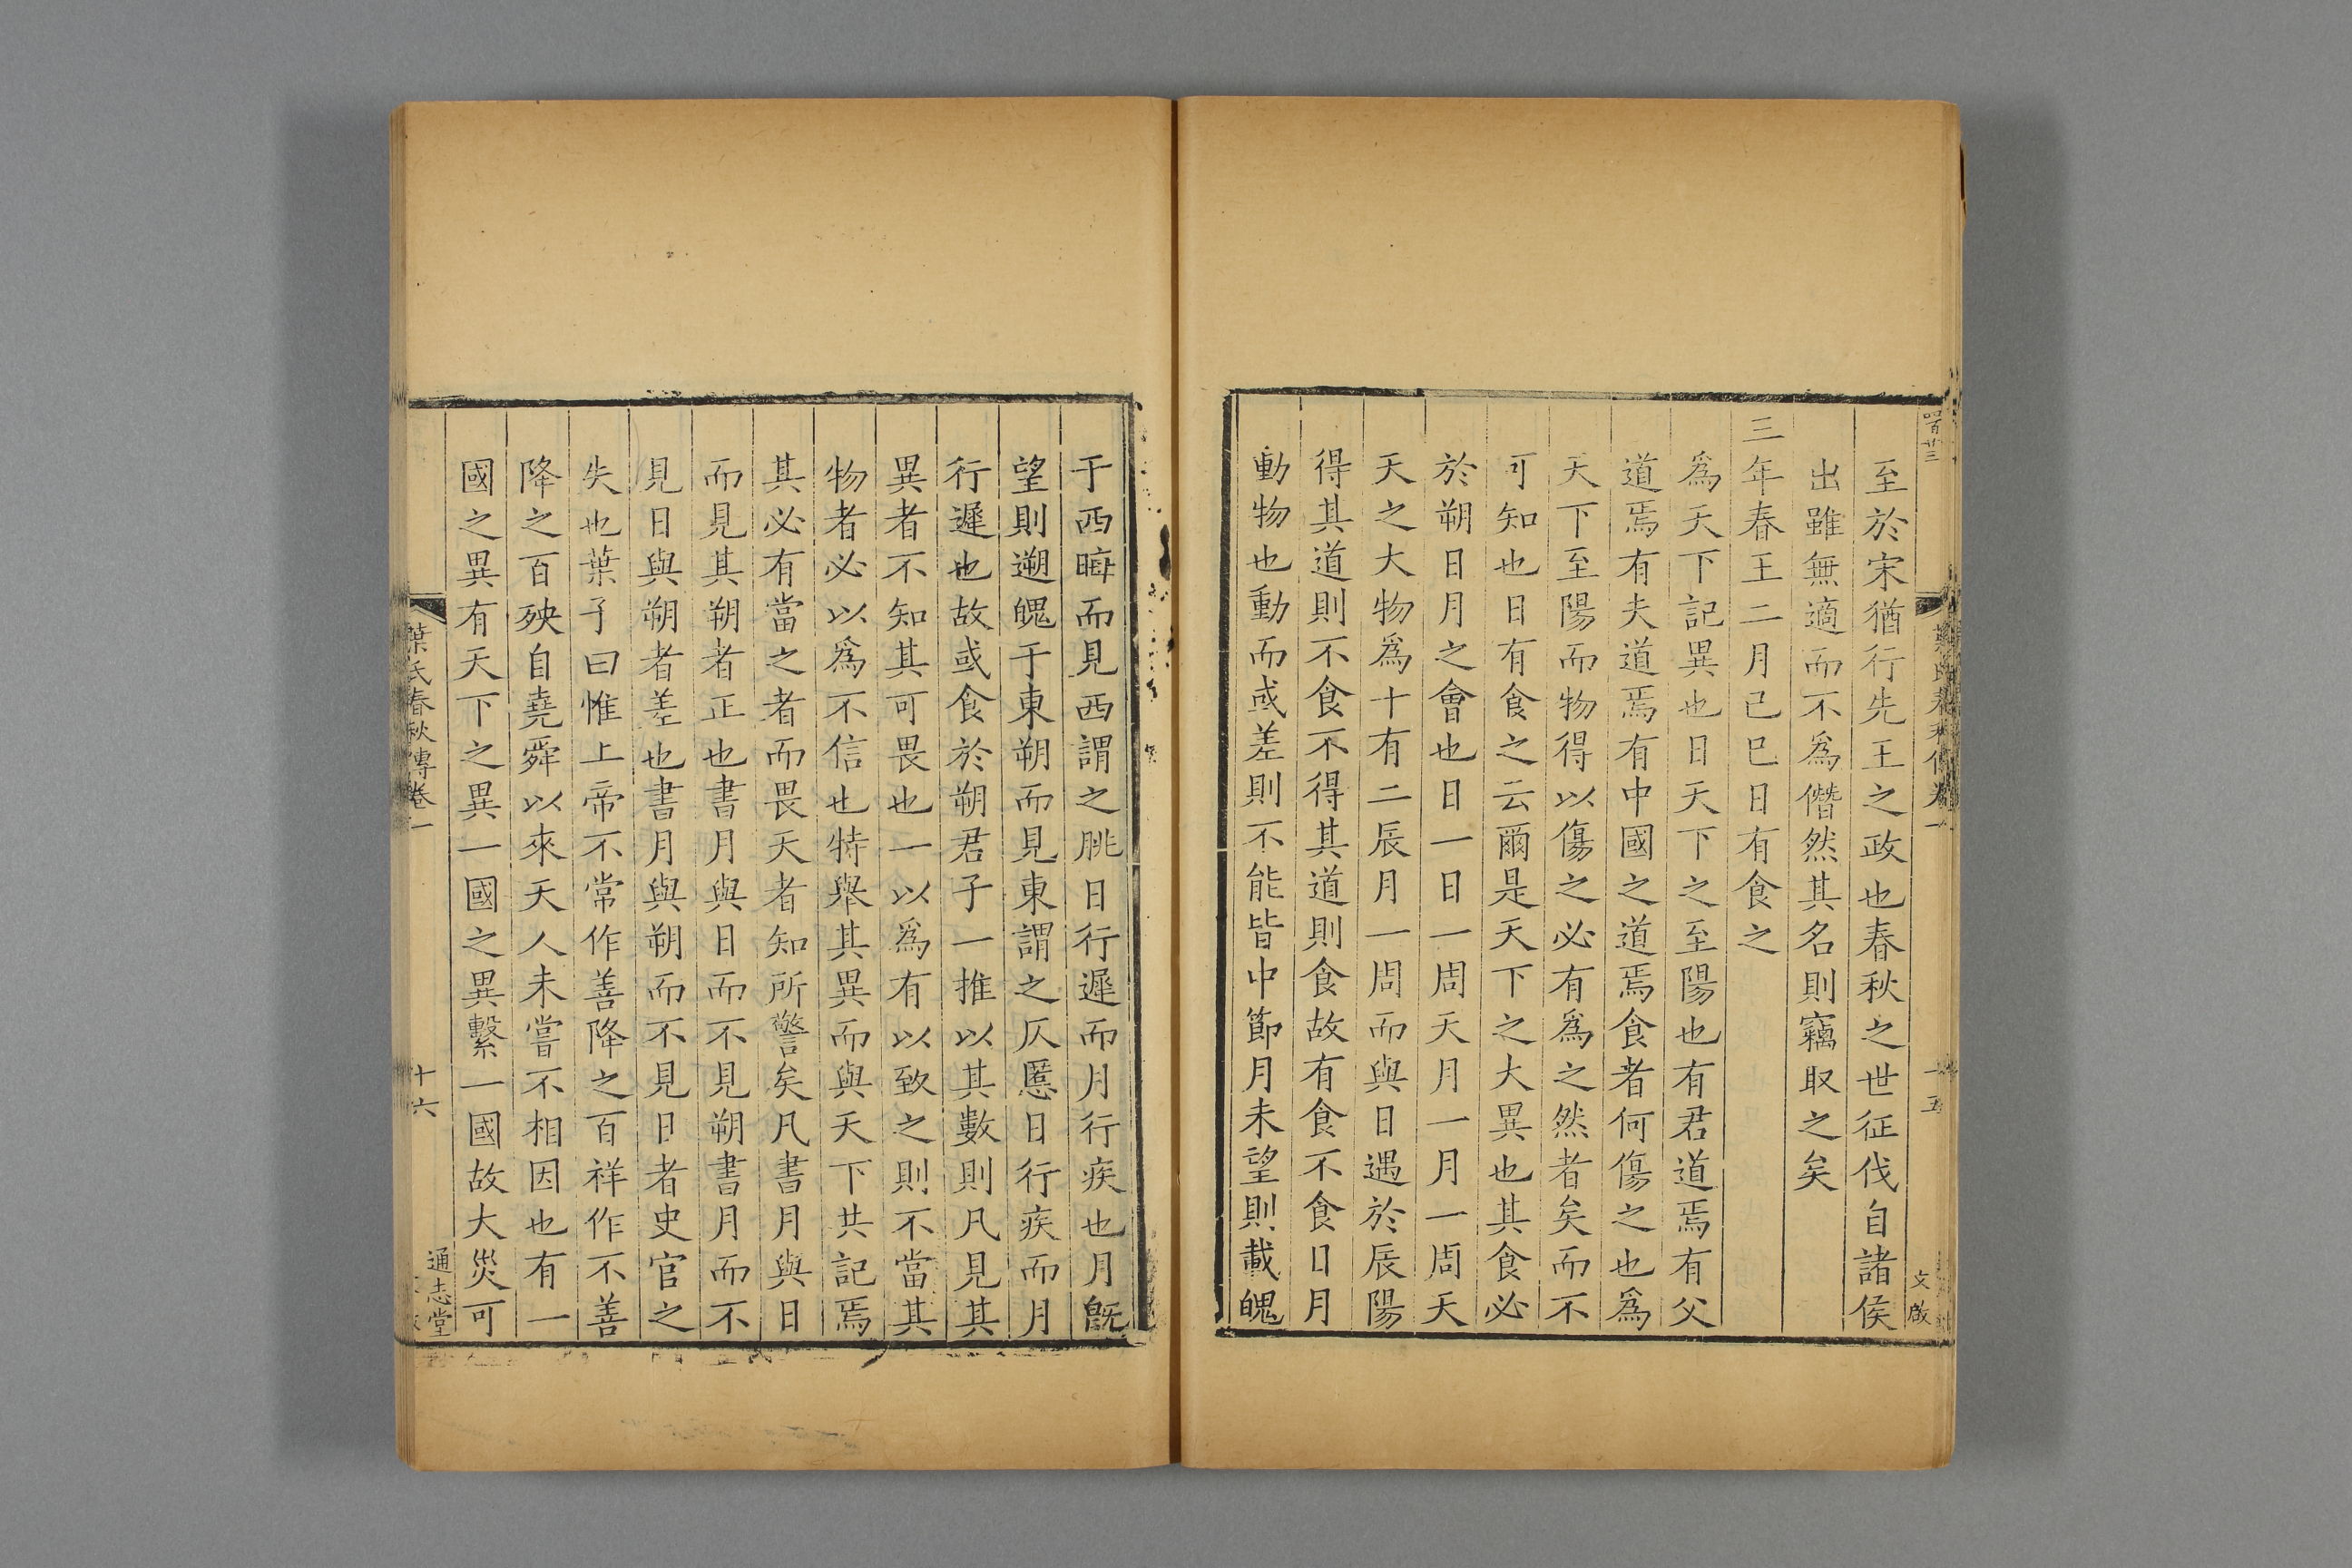 至於宋猶行先王之政也春秋之世征伐自諸侯
出雖無適而不爲僭然其名則竊取之矣
三年春王二月己巳日有食之
爲天下記異也日天下之至陽也有君道焉有父
道焉有夫道焉有中國之道焉食者何傷之也爲
天下至陽而物得以傷之必有爲之然者矣而不
可知也日有食之云爾是天下之大異也其食必
於朔日月之會也日一日一周天月一月一周天
天之大物爲十有二辰月一周而與日遇於辰陽
得其道則不食不得其道則食故有食不食日月
動物也動而或差則不能皆中節月未望則載魄
文啟
于西晦而見西謂之朓日行遲而月行疾也月旣
望則遡魄于東朔而見東謂之仄慝日行疾而月
行遲也故或食於朔君子一推以其數則凡見其
異者不知其可畏也一以爲有以致之則不當其
物者必以爲不信也特舉其異而與天下共記焉
其必有當之者而畏天者知所警矣凡書月與日
而見其朔者正也書月與日而不見朔書月而不
見日與朔者差也書月與朔而不見日者史官之
失也葉子曰惟上帝不常作善降之百祥作不善
降之百殃自堯舜以來天人未嘗不相因也有一
國之異有天下之異一國之異繫一國故大災可
葉氏春秋傳卷一
十六
通志堂